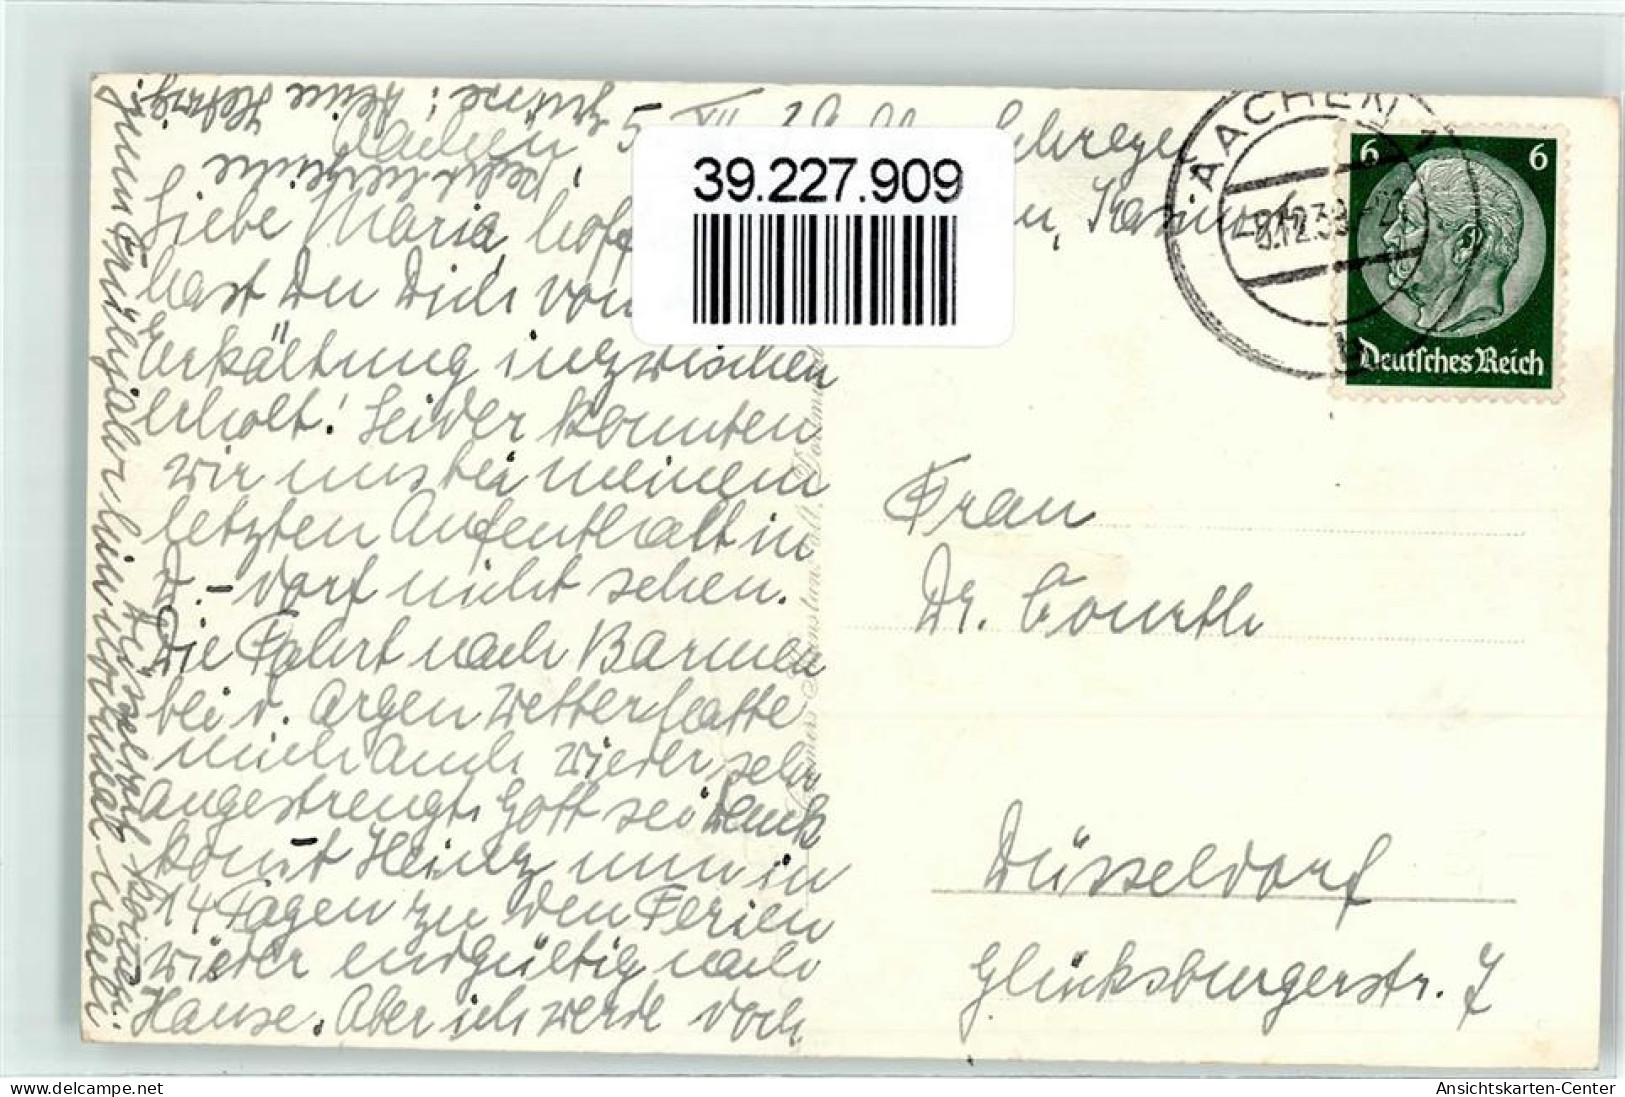 Aachen, 5. XII. 39.
Liebe Maria, hoff
hast Du Dich von
Erkältung inzwischen
erholt! Leider konnten
wir uns bei meinem
letzten Aufenthalt in
D.-dorf nicht sehen.
Die Fahrt nach Barmen
bei d. argen Wetter hatte
mich auch wieder sehr
angestrengt. Gott sei Dank
kommt Heinz nun in
14 Tagen zu den Ferien
wieder endgültig nach
Hause. Aber ich werde doch
zum Frühjahr hin
Düsseldorf kommen.
recht herzliche
Grüsse: Deine Hedwig
39.227.909
AACHEN
6 6
Deutsches Reich
Frau
Dr. Courth
Düsseldorf
Glücksburgerstr. 7
delcampe.net
Ansichtskarten-Center